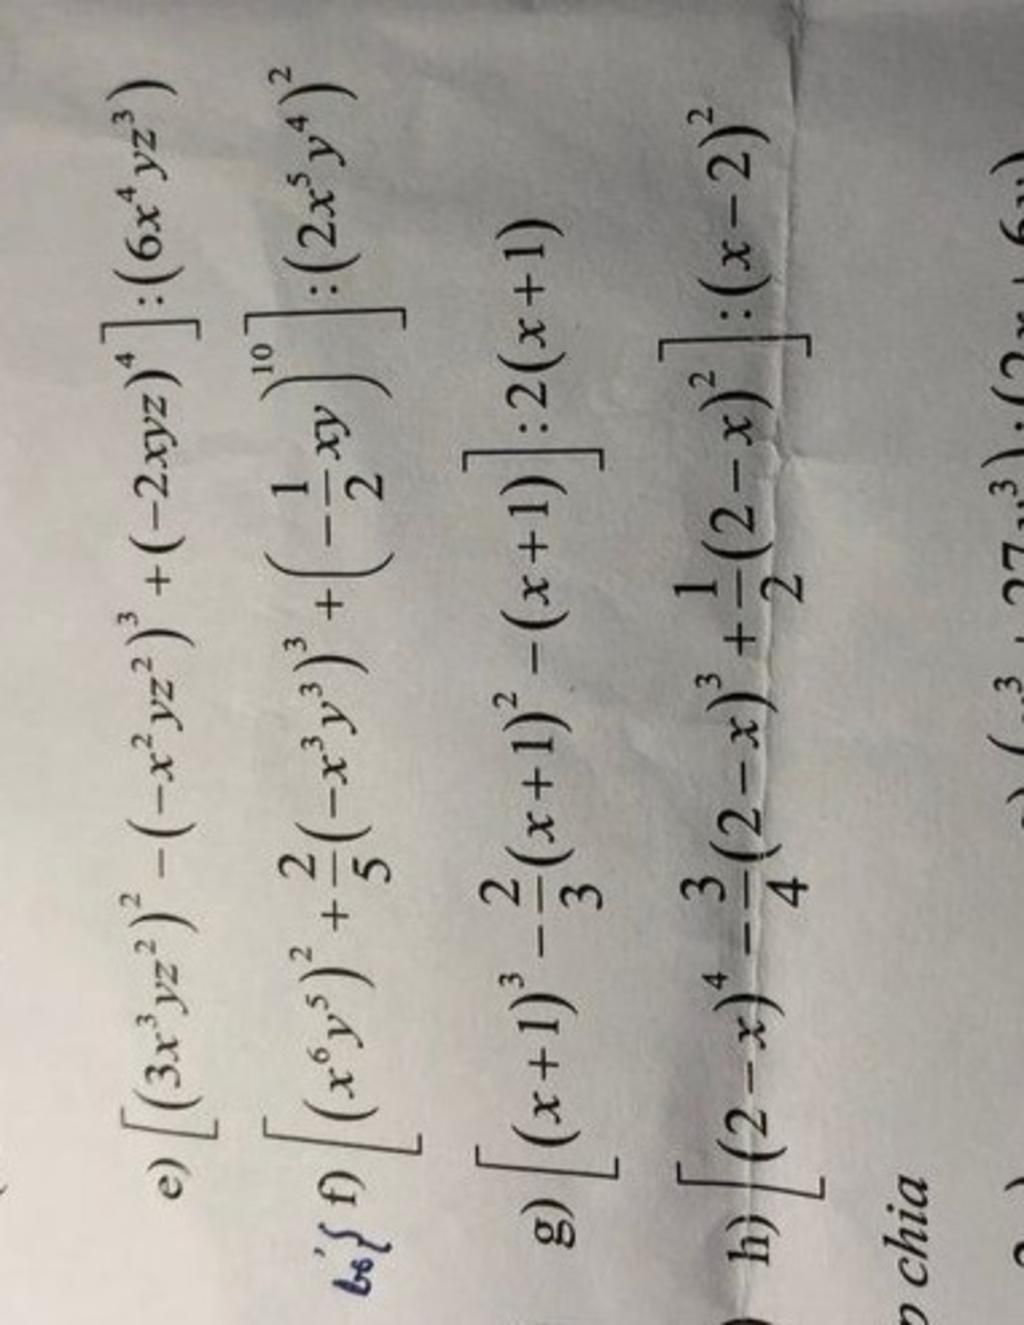 e) [(3x³yz²)² − (−x²yz²)³ + (−2xyz)⁴] : (6x⁴yz³)
bỏ { f) [(x⁶y⁵)² + 2/5(−x³y³)³ + (−1/2 xy)¹⁰] : (2x⁵y⁴)²
g) [(x+1)³ − 2/3(x+1)² − (x+1)] : 2(x+1)
h) [(2−x)⁴ − 3/4(2−x)³ + 1/2(2−x)²] : (x−2)²
chia